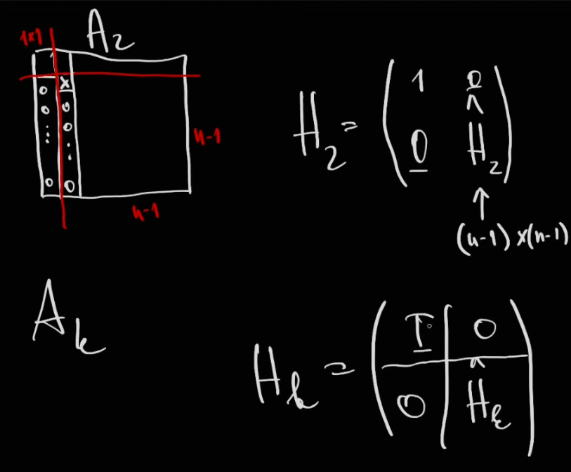 1x1
A₂
x
0 0
0 0
⋮ ⋮
0 0
n-1
n-1
H₂ = ( 1 0
0 Ĥ₂ )
↑
(n-1) x(n-1)
Aₖ
Hₖ = ( I 0
0 Ĥₖ )